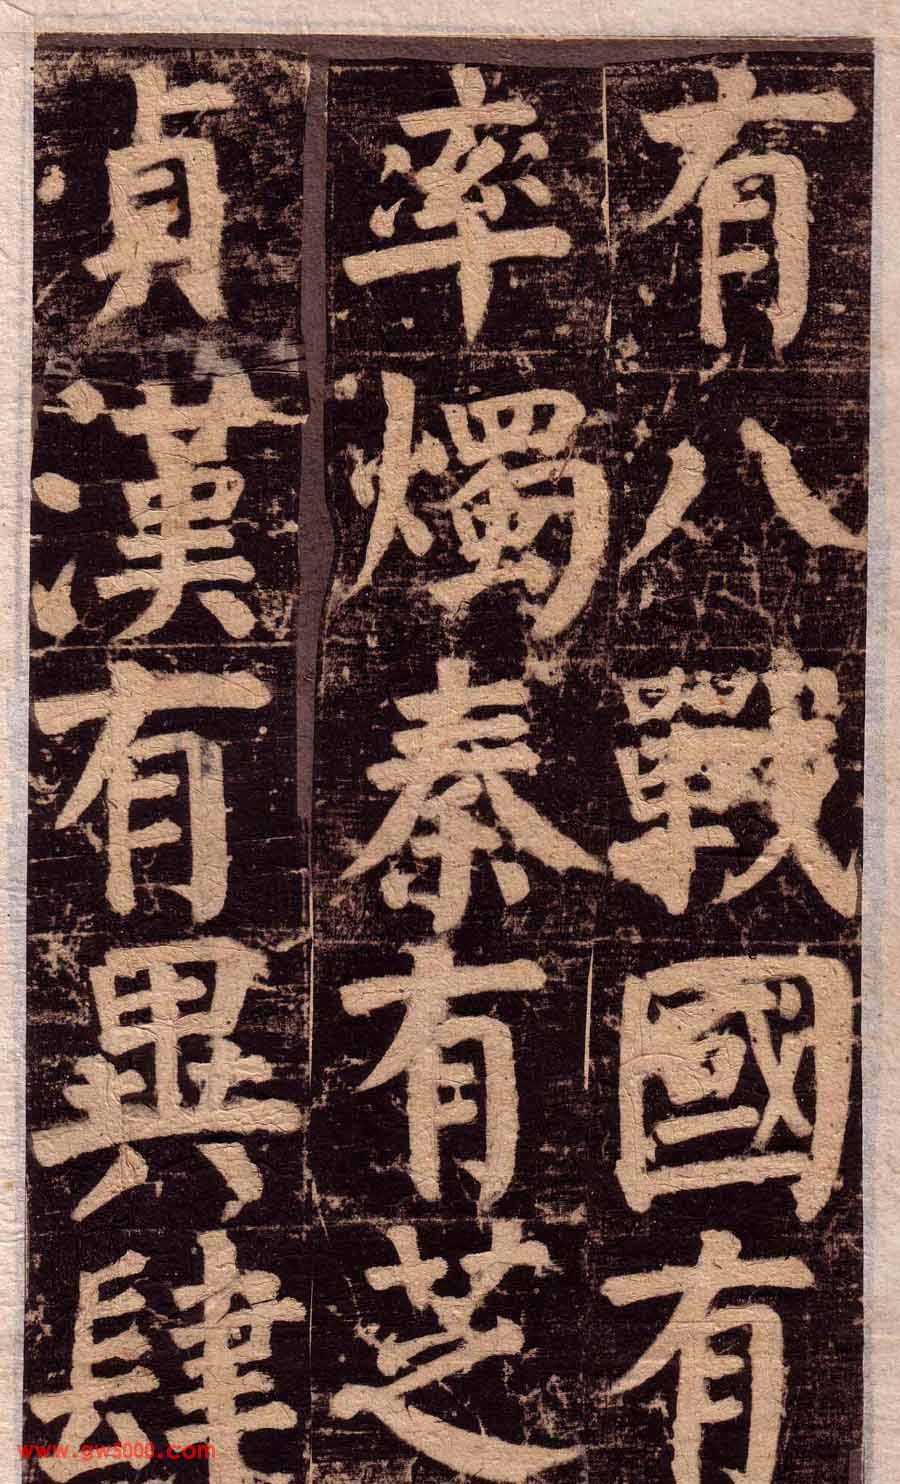 有八戰國有
率燭秦有芝
貞漢有異肆
www.gw5000.com